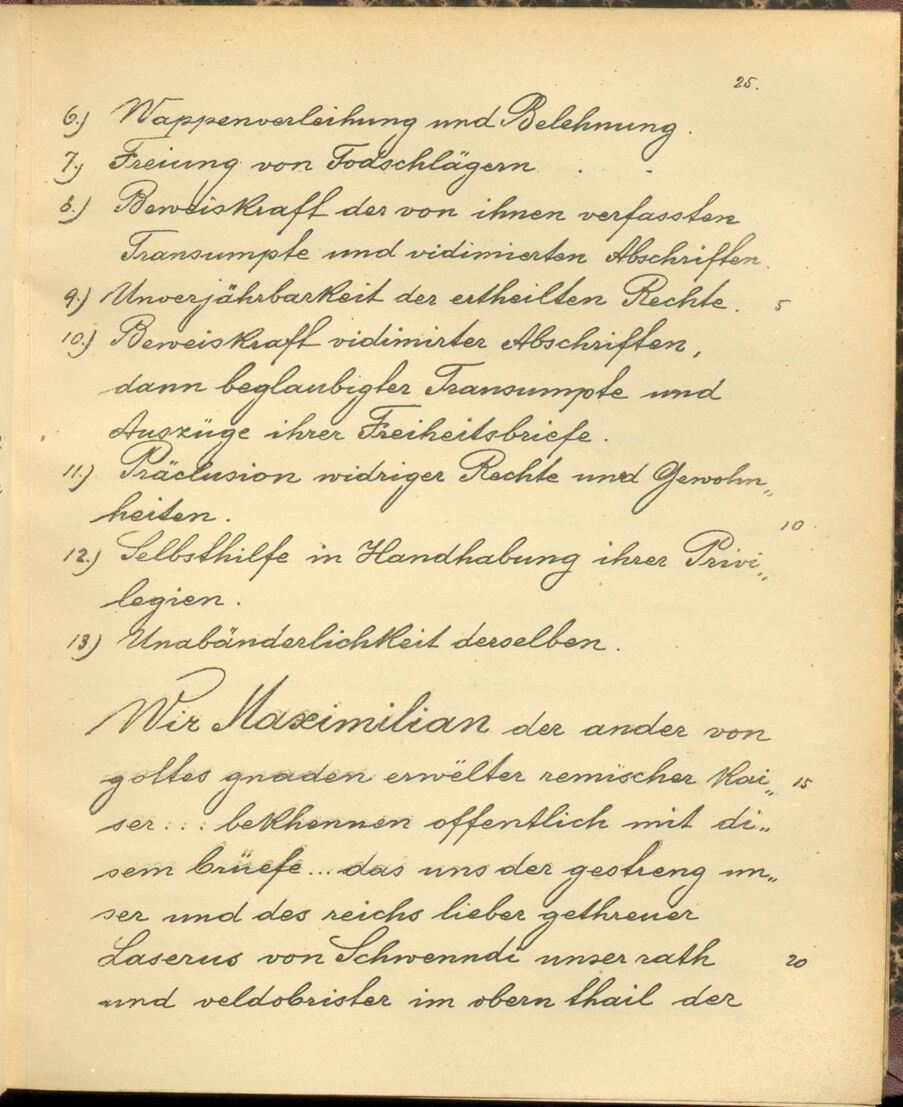 25.
6.) Wappenverleihung und Belehnung.
7.) Freiung von Todschlägern.
8.) Beweiskraft der von ihnen verfassten
Transumpte und vidimierten Abschriften.
9.) Unverjährbarkeit der ertheilten Rechte. 5
10.) Beweiskraft vidimirter Abschriften,
dann beglaubigter Transumpte und
Auszüge ihrer Freiheitsbriefe.
11.) Präclusion widriger Rechte und Gewohn„
heiten.
10
12.) Selbsthilfe in Handhabung ihrer Privi„
legien.
13) Unabänderlichkeit derselben.
Wir Maximilian der ander von
gottes gnaden erwëlter remischer Kai„ 15
ser... bekhennen offentlich mit di„
sem brüefe... das uns der gestreng un„
ser und des reichs lieber gethreuer
Laserus von Schwenndi unser rath 20
und veldobrister im obern thail der